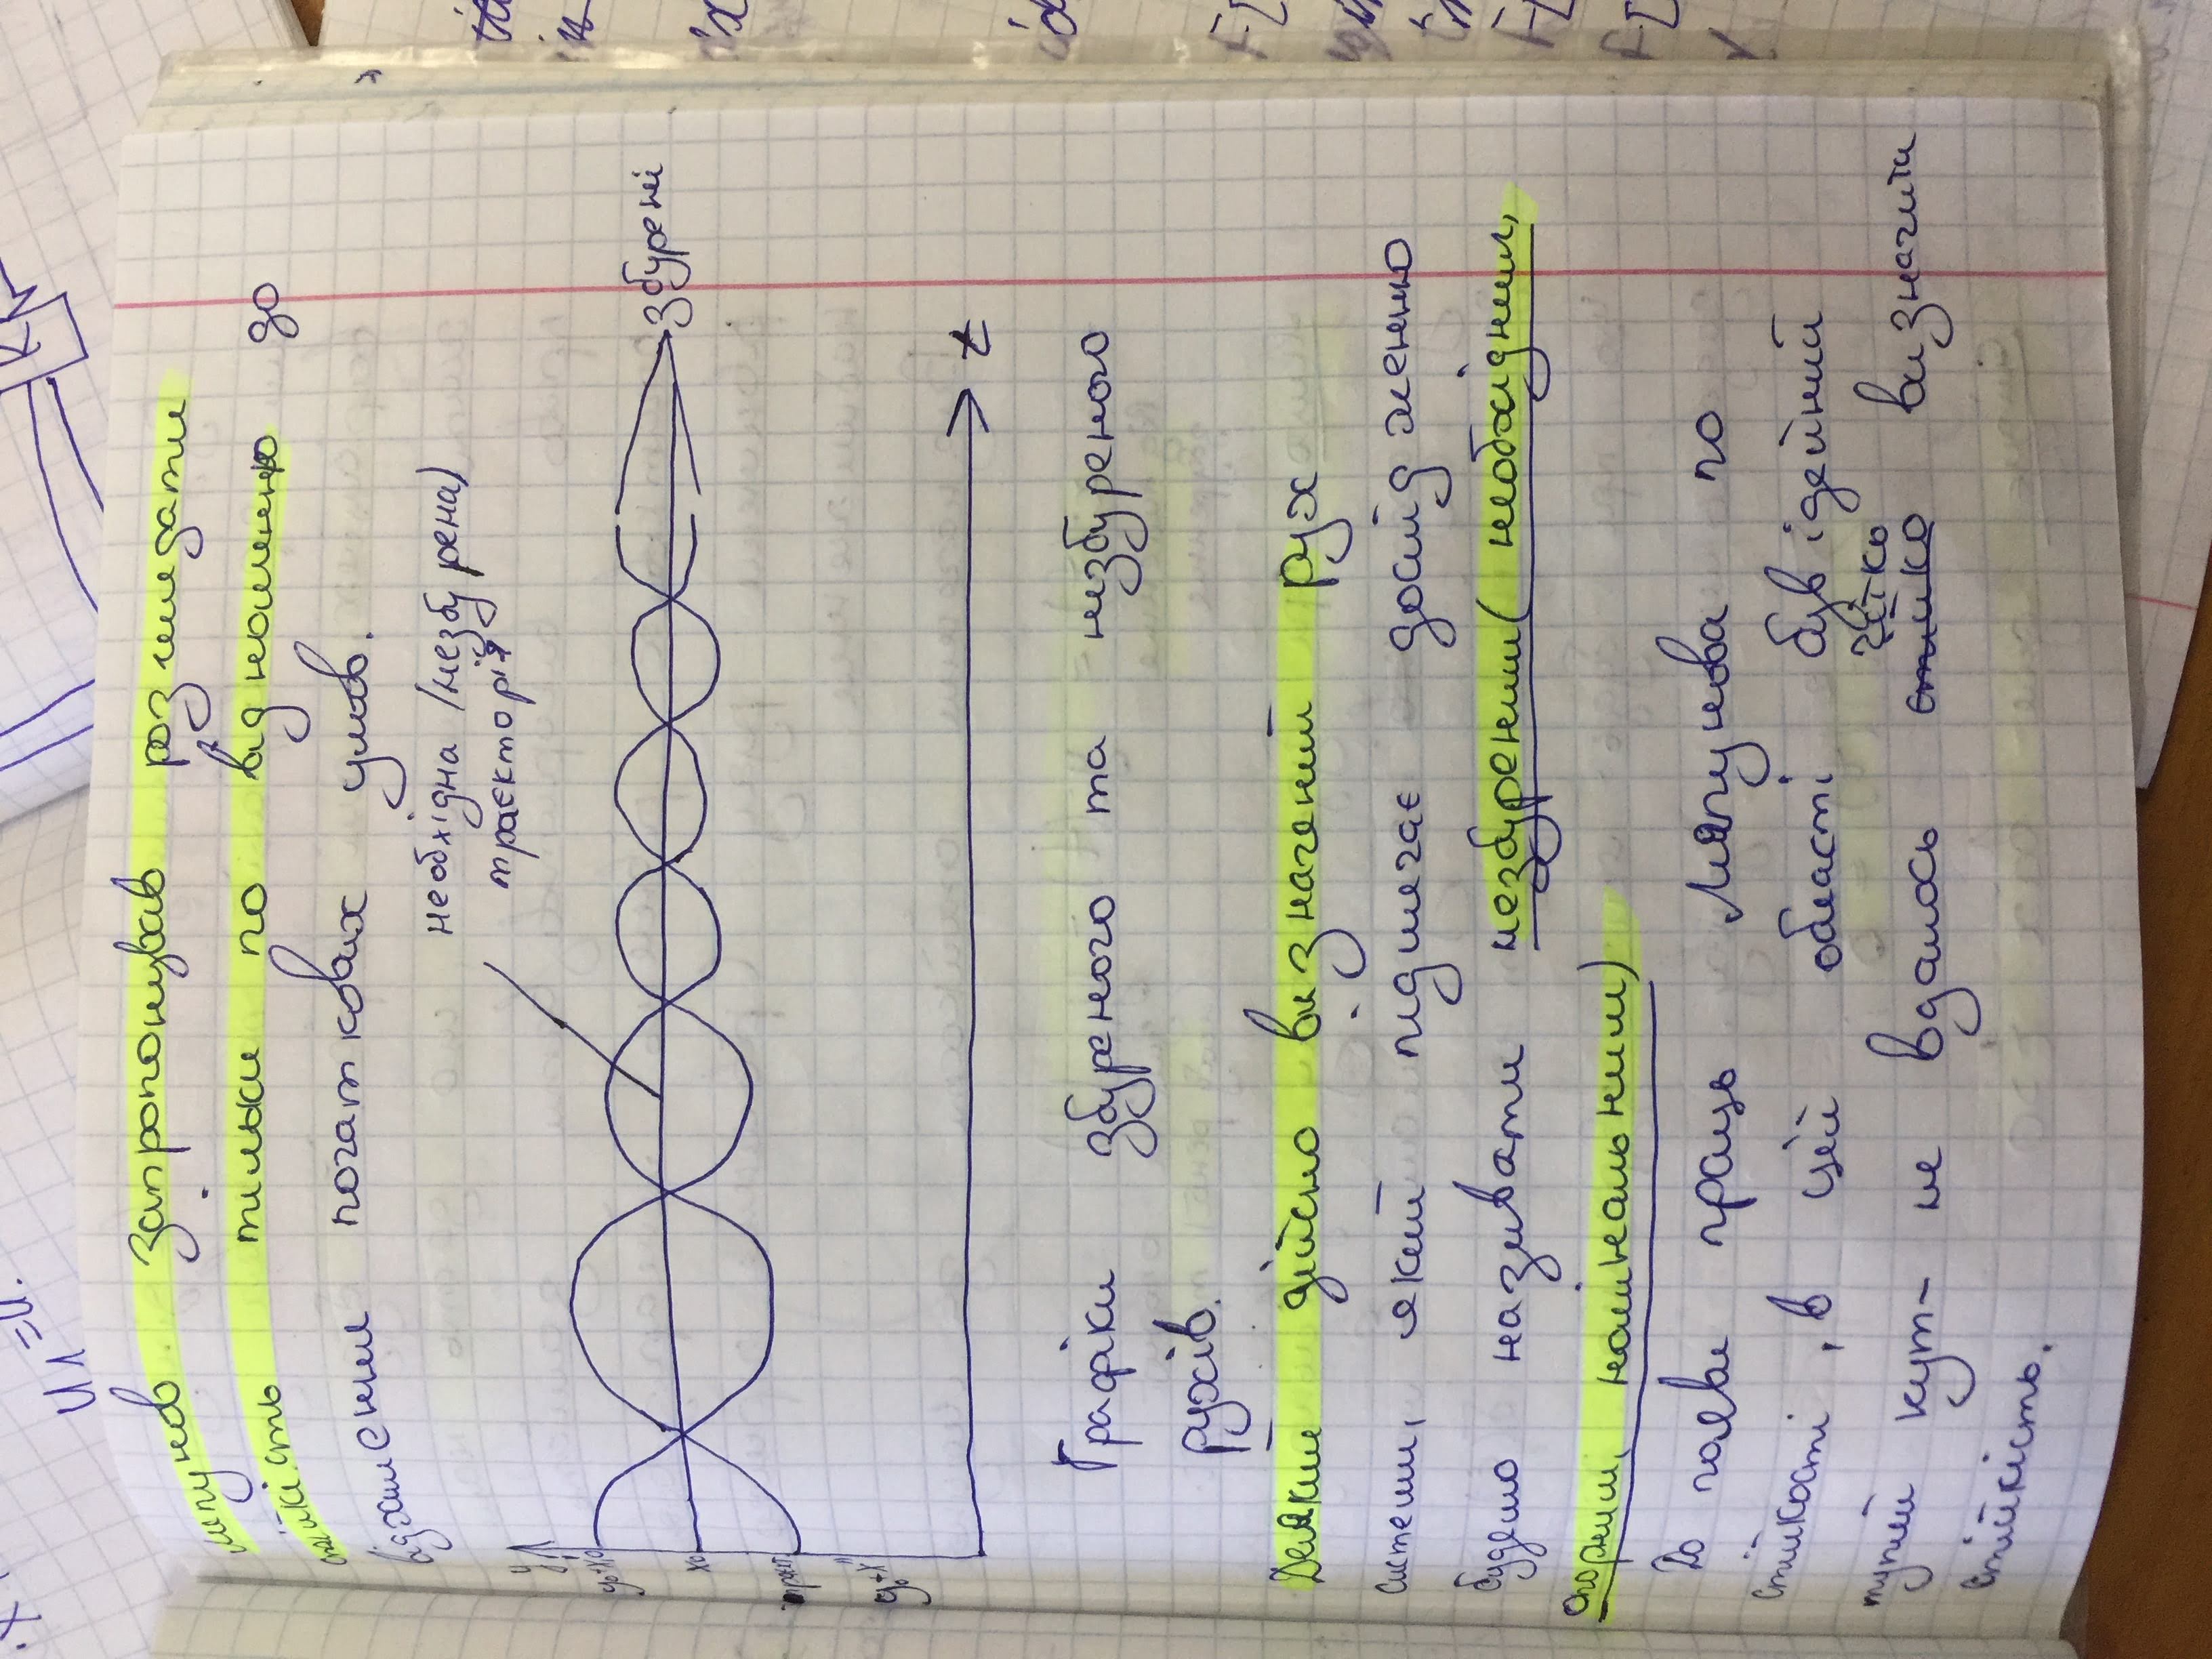 Ляпунов запропонував розглядати
стійкість тільки по відношенню до
відхилення початкових умов.
необхідна (незбурена)
траєкторія
y
y₀+x'₀
x₀
траєкт.
y₀+x"
збурені
t
Графіки збуреного та незбуреного
рухів.
Деякий дійсно визначений рух
системи, який підлягає дослідженню
будемо називати незбуреним( необхідним,
опорним, номінальним)
До появи праць Ляпунова по
стійкості, в цій області був ідейний
чітко
тупий кут- не вдалось стійко визначити
стійкість.